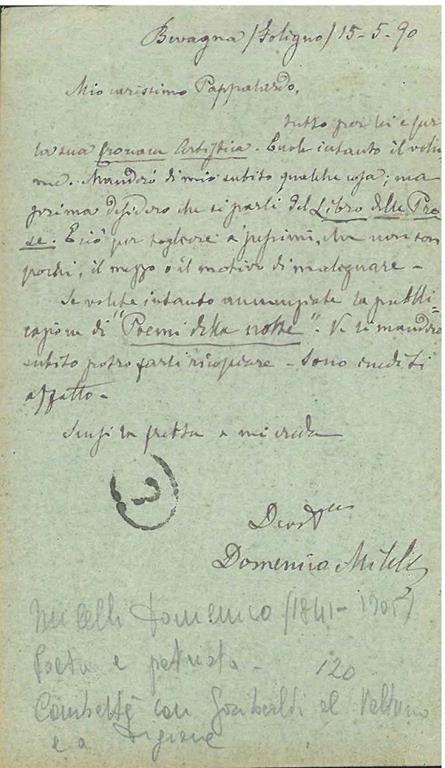 Bevagna (Foligno) 15-5-90
Mio carissimo Pappalardo,
tutto per lei e per
la sua Cronaca Artistica. Eccole intanto il volu
me. Manderò di mio subito qualche cosa; ma
prima desidero che si parli del Libro delle Pro
se. E ciò per togliere a' pessimi, che non son
pochi, il mezzo o il motivo di malignare -
Se volete intanto annunziate la pubbli-
cazione di "Poemi della notte". Ve li manderò
subito potrò farli ricopiare - Sono inediti
affatto -
Scusi la fretta e mi creda
3
Domenico Milelli
Milelli Domenico (1841-1905)
Poeta e patriota - 120
Combatté con Garibaldi al Volturno
e a Digione